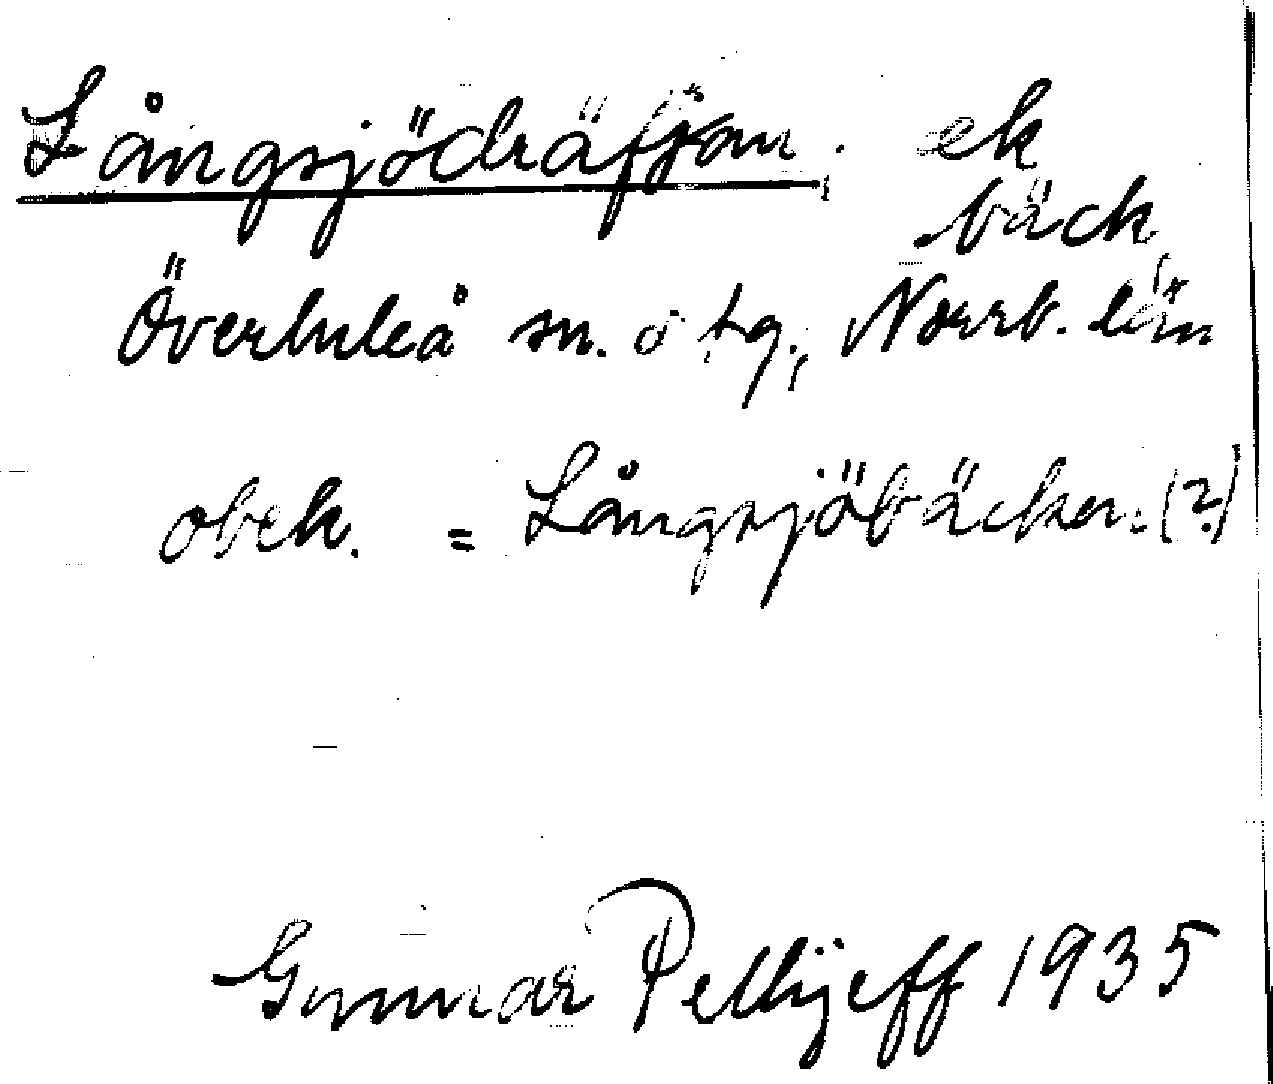 Långsjödräfjan. ek
bäck
Överluleå sn. o tg., Norrb. län
obek. = Långsjöbäcken. (?)
Gunnar Pellijeff 1935